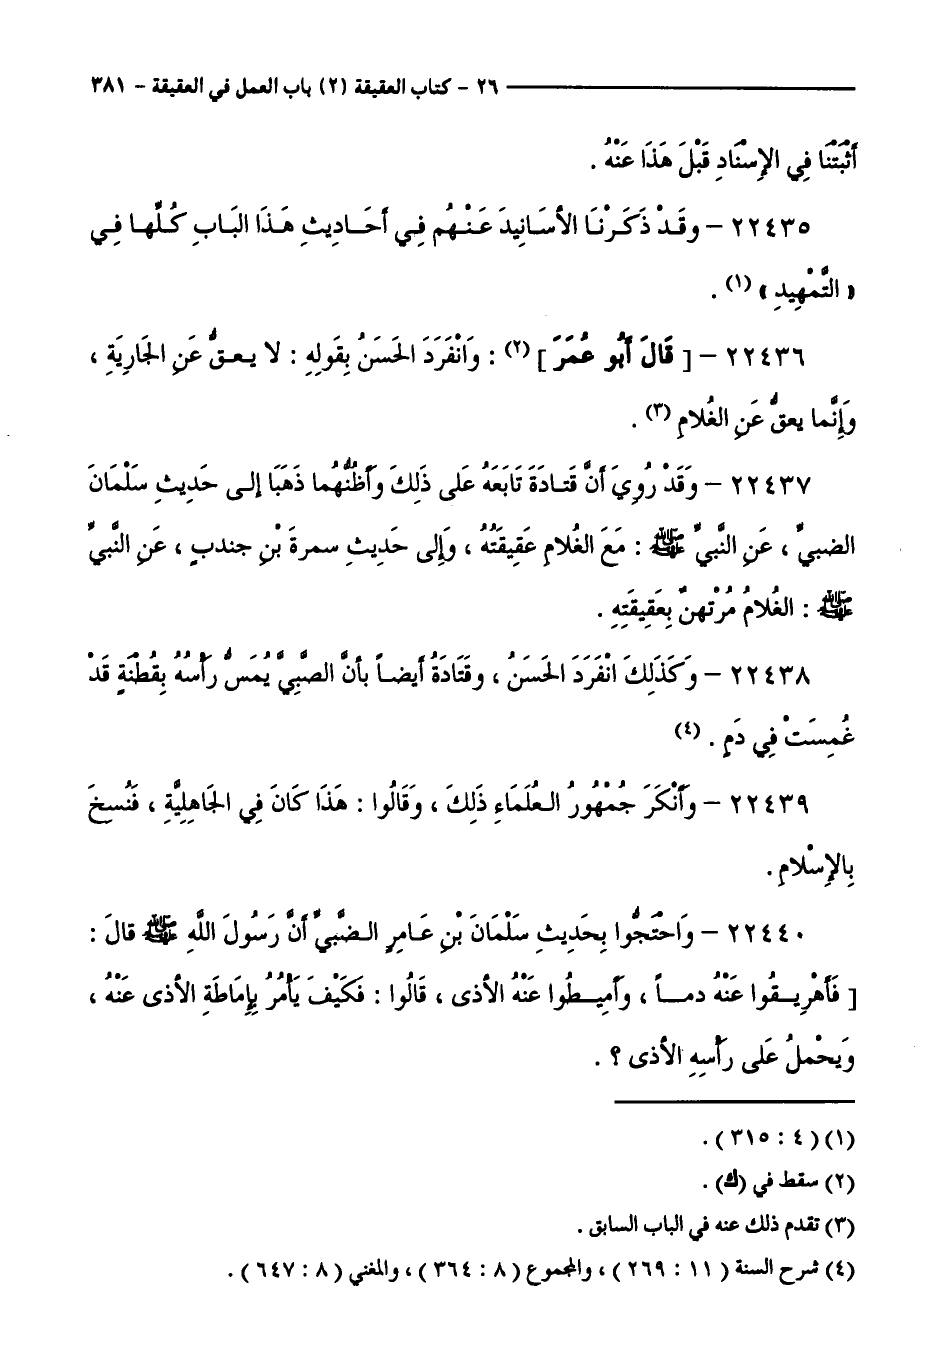 ٢٦ - كتاب العقيقة (٢) باب العمل في العقيقة - ٣٨١
أَثْبَتْنَا فِي الإِسْنَادِ قَبْلَ هَذَا عَنْهُ .
٢٢٤٣٥ – وقَدْ ذَكَرْنَا الأسَانِيدَ عَنْهُم فِي أَحَادِيثِ هَذَا البَابِ كُلِّها فِي
« التَّمْهِيدِ » (١) .
٢٢٤٣٦ – [ قَالَ أَبُو عُمَرَ ] (٢) : وَانْفَرَدَ الحَسَنُ بِقَولِهِ : لا يعقُّ عَنِ الجَارِيَةِ ،
وَإِنَّما يعقُّ عَنِ الغُلامِ (٣) .
٢٢٤٣٧ – وَقَدْ رُوِيَ أَنَّ قَتادَةَ تَابَعَهُ عَلى ذَلِكَ وَأَظُنُّهُما ذَهَبَا إِلى حَدِيثِ سَلْمَانَ
الضبيِّ ، عَنِ النَّبيِّ ﷺ : مَعَ الغُلامِ عَقِيقَتُهُ ، وَإِلى حَدِيثِ سمرةَ بْنِ جندبٍ ، عَنِ النَّبيِّ
ﷺ : الغُلامُ مُرْتهنٌ بِعَقِيقَتِهِ .
٢٢٤٣٨ – وَكَذَلِكَ انْفَرَدَ الحَسَنُ ، وقَتَادَةُ أيضاً بأنَّ الصَّبِيَّ يُمَسُّ رَأْسُهُ بِقُطْنَةٍ قَدْ
غُمِسَتْ فِي دَمٍ . (٤)
٢٢٤٣٩ – وَأَنْكَرَ جُمْهُورُ العُلَمَاءِ ذَلِكَ ، وَقَالُوا : هَذَا كَانَ فِي الجَاهِلِيَّةِ ، فَنُسِخَ
بِالإِسْلامِ .
٢٢٤٤٠ – وَاحْتَجُّوا بِحَدِيثِ سَلْمَانَ بْنِ عَامِرٍ الضَّبِّيِّ أَنَّ رَسُولَ اللَّهِ ﷺ قالَ :
[ فَأَهْرِيقُوا عَنْهُ دماً ، وأَمِيطُوا عَنْهُ الأذى ، قَالُوا : فَكَيْفَ يَأْمُرُ بِإِمَاطَةِ الأذى عَنْهُ ،
وَيَحْملُ عَلى رَأْسِهِ الأذى ؟ .
(١) (٤ : ٣١٥) .
(٢) سقط في (ك) .
(٣) تقدم ذلك عنه في الباب السابق .
(٤) شرح السنة (١١ : ٢٦٩) ، والمجموع (٨ : ٣٦٤) ، والمغني (٨ : ٦٤٧) .